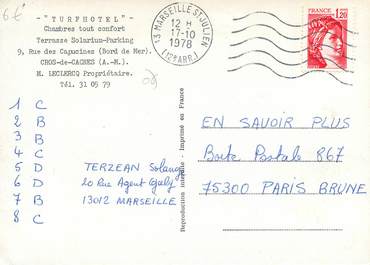 6€
- "TURFHOTEL" -
Chambres tout confort
Terrasse Solarium-Parking
9, Rue des Capucines (Bord de Mer).
CROS-de-CAGNES (A.-M.).
M. LECLERCQ Propriétaire.
Tél. 31 05 79
13 MARSEILLE ST JULIEN
12 H
17-10
1978
(12e ARR.)
FRANCE
1,20
1 C
2 B
3 B
4 C
5 D
6 D
7 B
8 C
TERZEAN Solange
20 Rue Agent
13012 MARSEILLE
Reproduction interdite - Imprimé en France
EN SAVOIR PLUS
Boite Postale 867
75300 PARIS BRUNE